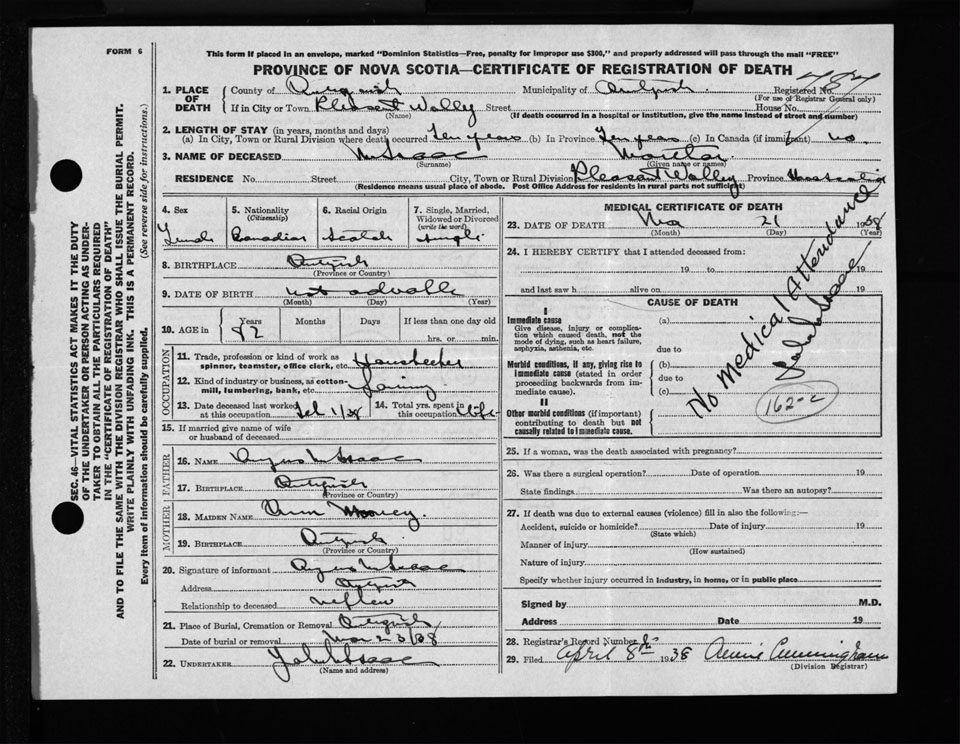 FORM 6
This form if placed in an envelope, marked "Dominion Statistics—Free, penalty for improper use $300," and properly addressed will pass through the mail "FREE"
PROVINCE OF NOVA SCOTIA—CERTIFICATE OF REGISTRATION OF DEATH
1. PLACE OF DEATH
County of Municipality of Registered No.
(For use of Registrar General only)
If in City or Town Pleasent Vally Street House No.
(Name) (If death occurred in a hospital or institution, give the name instead of street and number)
2. LENGTH OF STAY (in years, months and days)
(a) In City, Town or Rural Division where death occurred Ten years (b) In Province Ten years (c) In Canada (if immigrant) no
3. NAME OF DECEASED McIsaac
(Surname) (Given name or names)
RESIDENCE No. Street City, Town or Rural Division Pleasent Vally Province
(Residence means usual place of abode. Post Office Address for residents in rural parts not sufficient)
4. Sex
5. Nationality (Citizenship) Canadian
6. Racial Origin Scotch
7. Single, Married, Widowed or Divorced (write the word) single
8. BIRTHPLACE
(Province or Country)
9. DATE OF BIRTH
(Month) (Day) (Year)
10. AGE in Years Months Days If less than one day old
82 hrs. or min.
OCCUPATION
11. Trade, profession or kind of work as spinner, teamster, office clerk, etc.
12. Kind of industry or business, as cotton-mill, lumbering, bank, etc.
13. Date deceased last worked at this occupation
14. Total yrs. spent in this occupation life
15. If married give name of wife or husband of deceased
FATHER
16. NAME Angus McIsaac
17. BIRTHPLACE
(Province or Country)
MOTHER
18. MAIDEN NAME Ann Mooney
19. BIRTHPLACE
(Province or Country)
20. Signature of informant Angus McIsaac
Address
Relationship to deceased neffew
21. Place of Burial, Cremation or Removal
Date of burial or removal Mar 23/38
22. UNDERTAKER John McIsaac
(Name and address)
MEDICAL CERTIFICATE OF DEATH
23. DATE OF DEATH 21 1938
(Month) (Day) (Year)
24. I HEREBY CERTIFY that I attended deceased from:
19 to 19
and last saw h alive on 19
CAUSE OF DEATH
I
Immediate cause
Give disease, injury or complication which caused death, not the mode of dying, such as heart failure, asphyxia, asthenia, etc.
(a)
due to
Morbid conditions, if any, giving rise to immediate cause (stated in order proceeding backwards from immediate cause).
(b)
due to
(c)
II
Other morbid conditions (if important) contributing to death but not causally related to immediate cause.
No Medical Attendance
John McIsaac
162-c
25. If a woman, was the death associated with pregnancy?
26. Was there a surgical operation? Date of operation 19
State findings Was there an autopsy?
27. If death was due to external causes (violence) fill in also the following:—
Accident, suicide or homicide? Date of injury 19
(State which)
Manner of injury
(How sustained)
Nature of injury
Specify whether injury occurred in industry, in home, or in public place
Signed by M.D.
Address Date 19
28. Registrar's Record Number
29. Filed April 8th 1938 Annie Cunningham
(Division Registrar)
SEC. 46—VITAL STATISTICS ACT MAKES IT THE DUTY
OF THE UNDERTAKER OR PERSON ACTING AS UNDER-
TAKER TO OBTAIN ALL THE PARTICULARS REQUIRED
IN THE "CERTIFICATE OF REGISTRATION OF DEATH"
AND TO FILE THE SAME WITH THE DIVISION REGISTRAR WHO SHALL ISSUE THE BURIAL PERMIT.
WRITE PLAINLY WITH UNFADING INK. THIS IS A PERMANENT RECORD.
Every item of information should be carefully supplied. (See reverse side for instructions.)